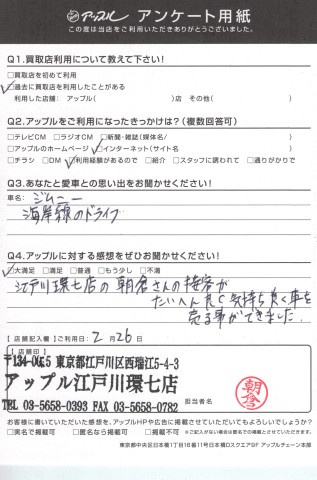 アップル アンケート用紙
この度は当店をご利用いただきありがとうございました。
Q1.買取店利用について教えて下さい!
□買取店を初めて利用
□過去に買取店を利用したことがある
利用した店舗: アップル( )店 その他( )
Q2.アップルをご利用になったきっかけは?(複数回答可)
□テレビCM □ラジオCM □新聞・雑誌(媒体名/ )
□アップルのホームページ □インターネット(サイト名 )
□チラシ □DM □利用経験があるので □紹介 □スタッフに誘われて □通りがかりで
Q3.あなたと愛車との思い出をお聞かせください!
車名: ジムニー
海岸線のドライブ
Q4.アップルに対する感想をぜひお聞かせください!
□大満足 □満足 □普通 □もう少し □不満
江戸川環七店の朝倉さんの接客が
たいへん良く気持ち良く車を
売る事ができました.
【店舗記入欄】ご利用日: 2月26日
【店舗印】
〒134-0015 東京都江戸川区西瑞江5-4-3
アップル江戸川環七店
TEL 03-5658-0393 FAX 03-5658-0782
担当者名
朝倉
お客様に書いていただいた感想を、アップルHPや広告に掲載させていただいてもよろしいでしょうか?
□実名で掲載可 □匿名なら掲載可 □掲載不可 ※ご記入がない場合は匿名での掲載とさせていただきます。
東京都中央区日本橋1丁目16番11号日本橋Dスクエア5F アップルチェーン本部